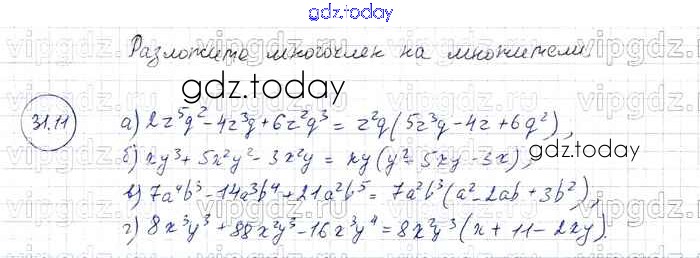 gdz.today
Разложите многочлен на множители.
gdz.today
31.11
а) 2z⁵q² - 4z³q + 6z²q³ = z²q(5z³q - 4z + 6q²),
б) xy³ + 5x²y² - 3x²y = xy(y² - 5xy - 3x),
в) 7a⁴b³ - 14a³b⁴ + 21a²b⁵ = 7a²b³(a² - 2ab + 3b²),
г) 8x³y³ + 88x²y³ - 16x³y⁴ = 8x²y³(x + 11 - 2xy).
gdz.today